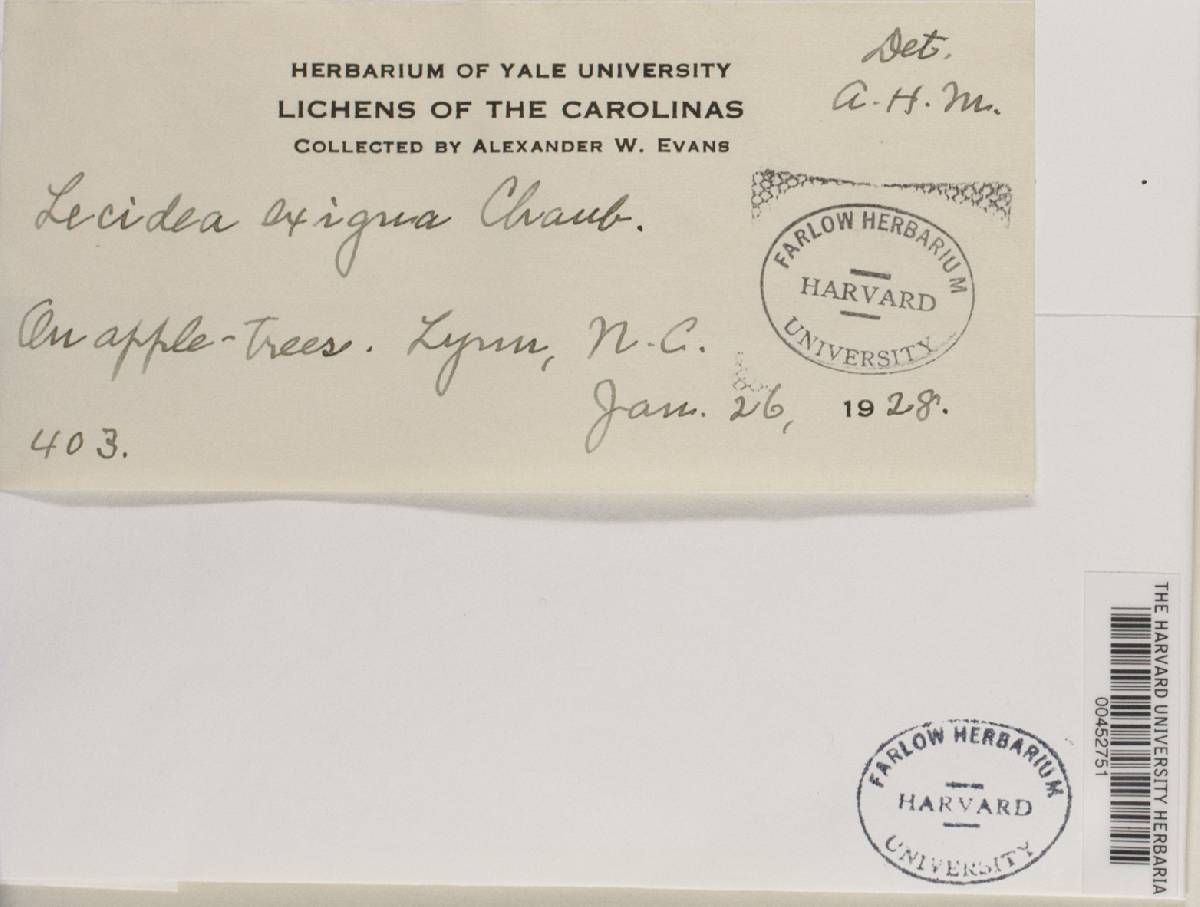 Det.
A. H. M.
HERBARIUM OF YALE UNIVERSITY
LICHENS OF THE CAROLINAS
COLLECTED BY ALEXANDER W. EVANS
Lecidea exigua Chaub.
FARLOW HERBARIUM
HARVARD
UNIVERSITY
On apple-trees. Lynn, N.C.
Jan. 26, 1928.
403.
THE HARVARD UNIVERSITY HERBARIA
00452751
FARLOW HERBARIUM
HARVARD
UNIVERSITY